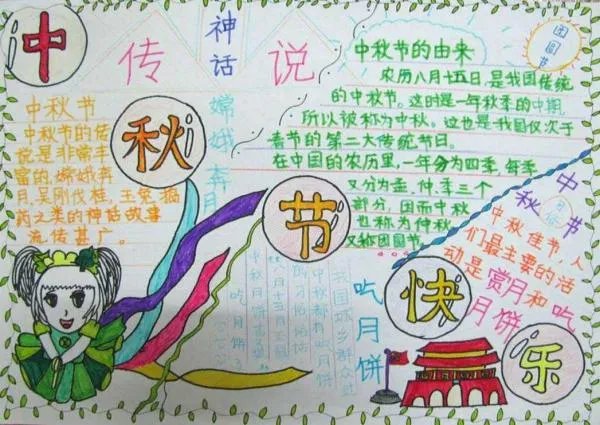 中
秋
节
快
乐
神话
传说
嫦娥奔月
中秋节
中秋节的传
说是非常丰
富的,嫦娥奔
月,吴刚伐桂,玉兔捣
药之类的神话故事
流传甚广。
团圆节
中秋节的由来
农历八月十五日,是我国传统
的中秋节。这时是一年秋季的中期,
所以被称为中秋。这也是我国仅次于
春节的第二大传统节日。
在中国的农历里,一年分为四季,每季
又分为孟,仲,季三个
部分,因而中秋
也称为仲秋
又称团圆节
中秋节
中秋佳节,人
们最主要的活
动是赏月和吃
月饼
吃月饼
我国城乡群众过
中秋都有吃月饼
的习俗,俗话
中秋月饼